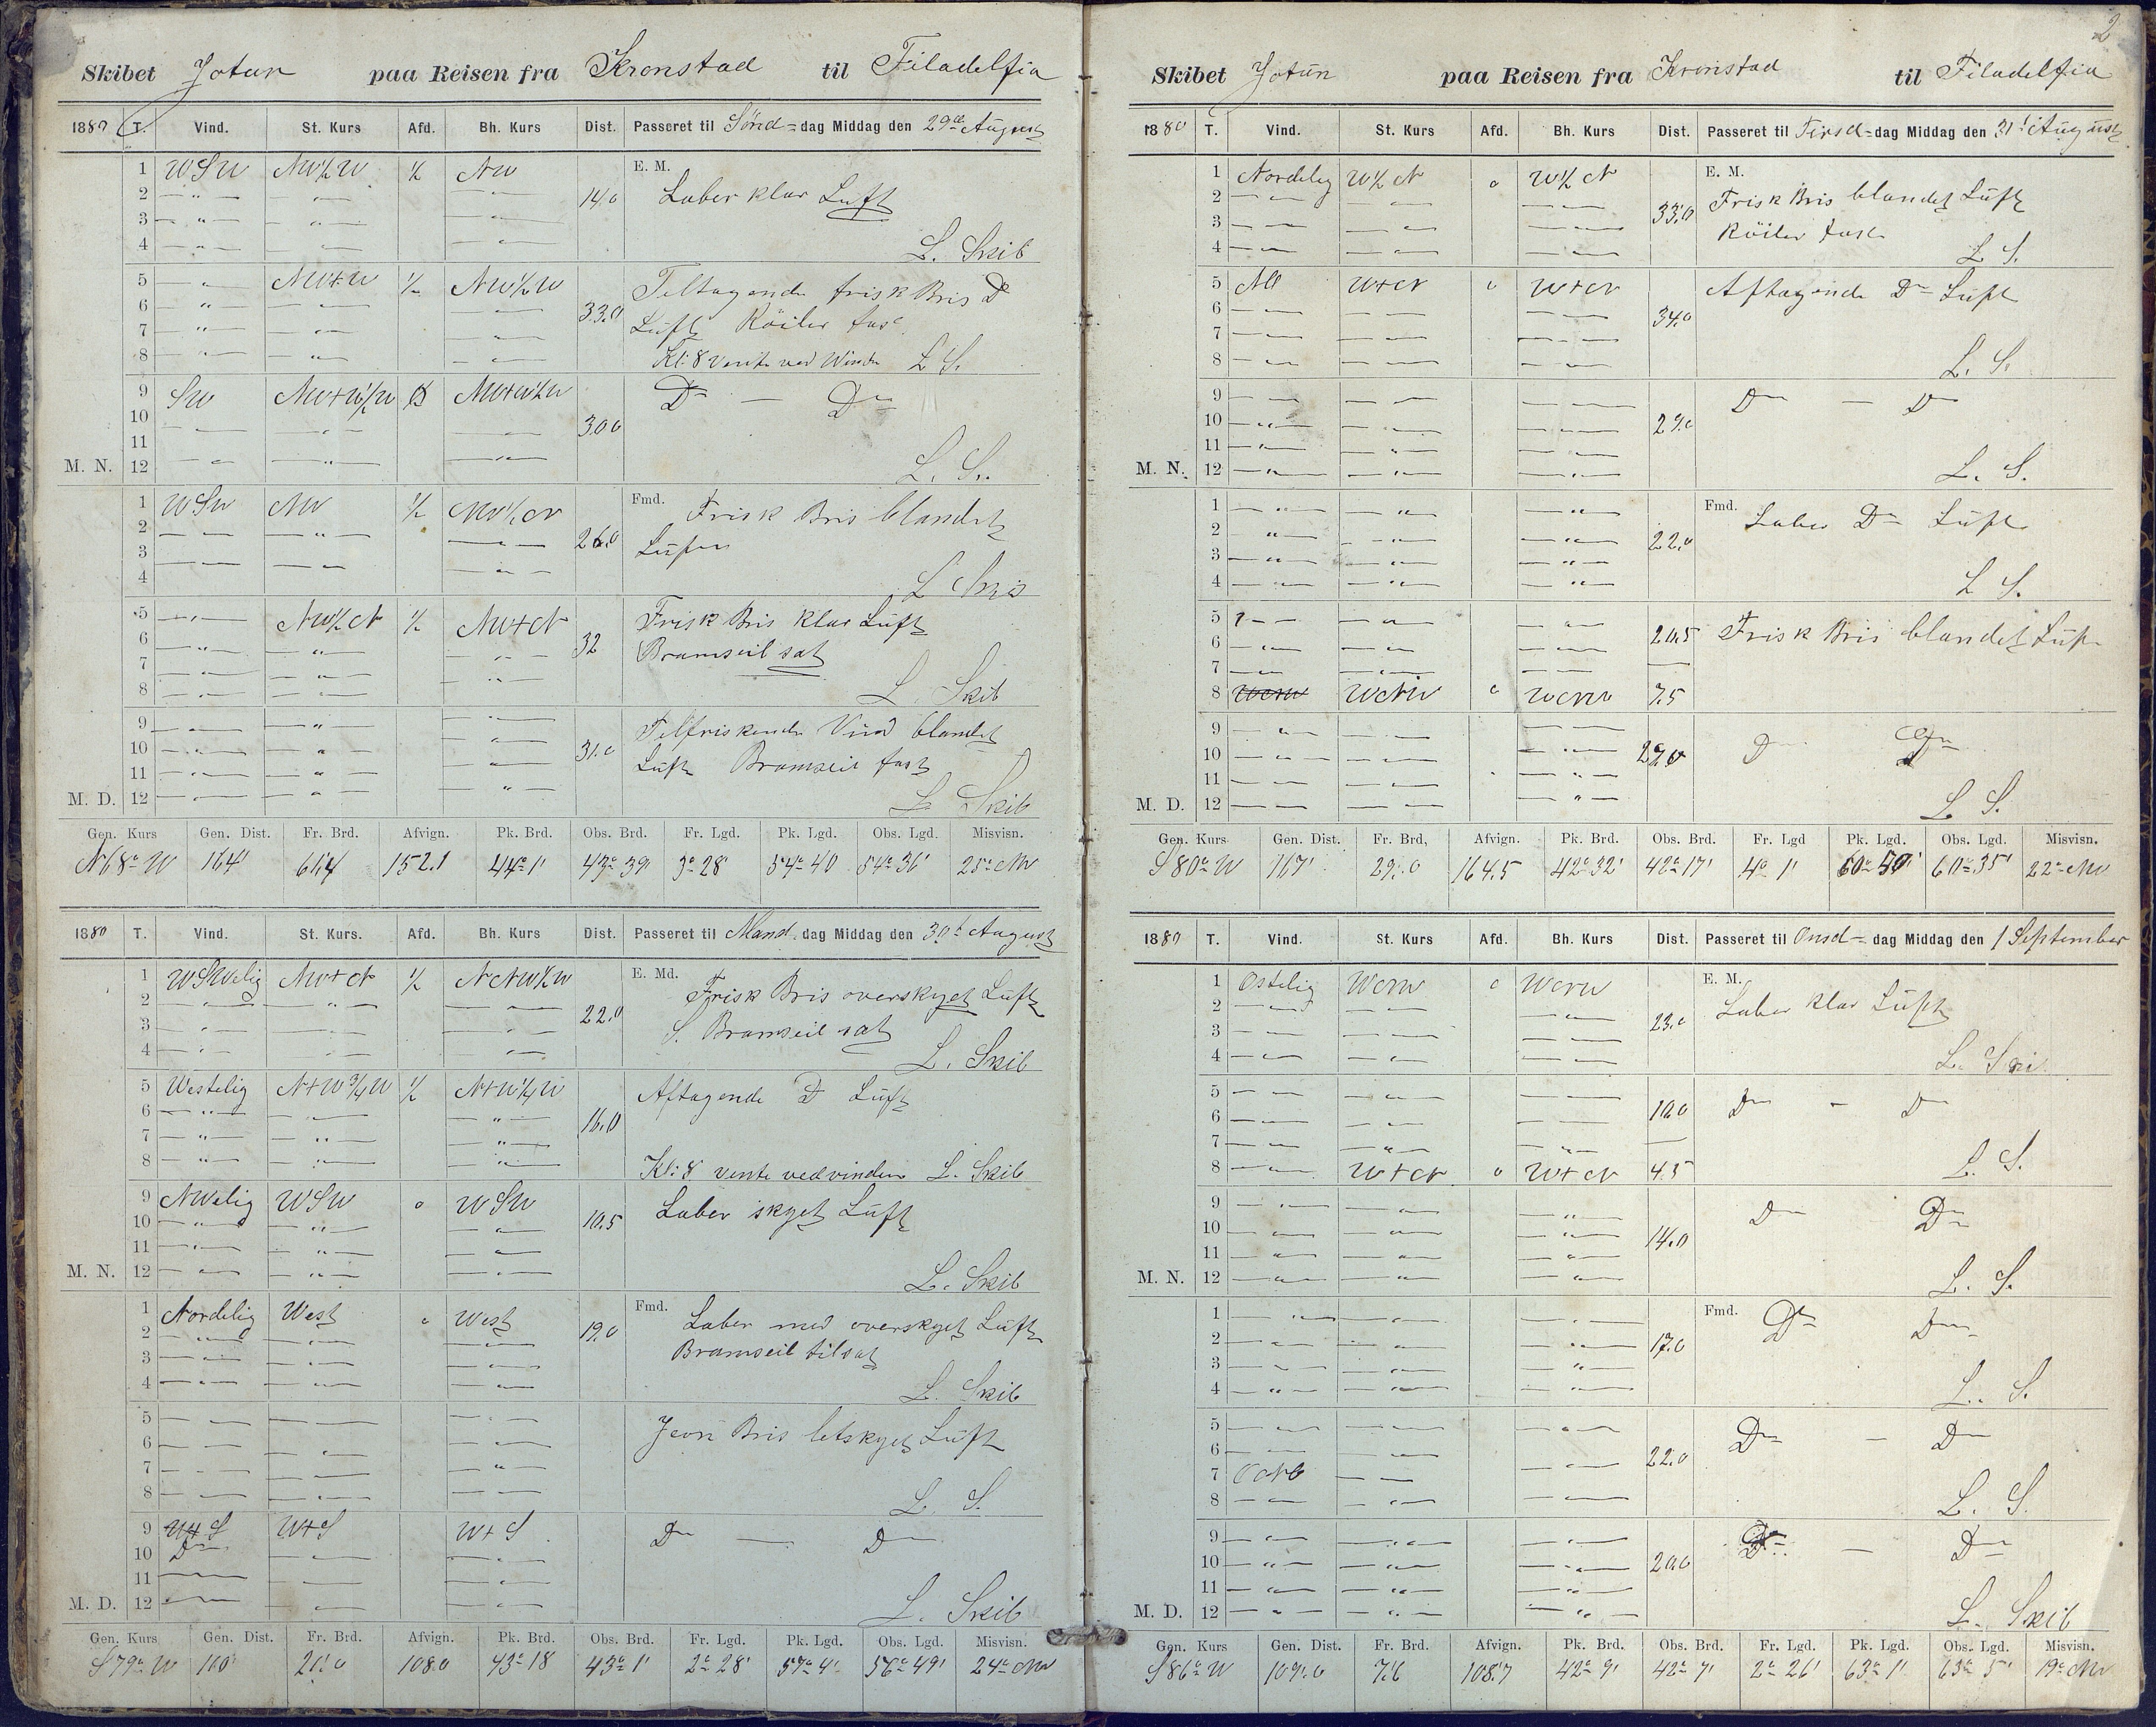 Skibet Jotun paa Reisen fra Kronstad til Filadelfia
1880 T. Vind. St. Kurs Afd. Bh. Kurs Dist. Passeret til Sönd=dag Middag den 29de August
E. M.
1 WSW NW½W ½ NW
2 14.0 Laber klar Luft
3
4 L. Skib
5 NW+W ½ NW½W Tiltagende frisk Bris Do
6 33.0 Luft Röiler fast
7
8 Kl: 8 vente ved Winden L S.
9 SW NW+W½W NW+W½W Do — Do
10 30.0
11
M. N. 12 L. S.
Fmd.
1 WSW NW ½ NW½N Frisk Bris blandet
2 26.0 Luft
3
4 L Skib
5 NW½N ½ NW+N Frisk Bris klar Luft
6 32 Bramseil sat
7
8 L. Skib
9 Tilfriskende Vind blandet
10 31.0 Luft Bramseil fast
11
M. D. 12 L Skib
Gen. Kurs Gen. Dist. Fr. Brd. Afvign. Pk. Brd. Obs. Brd. Fr. Lgd. Pk. Lgd. Obs. Lgd. Misvisn.
N68°W 164' 61.4 152.1 44° 1' 43° 39' 3° 28' 54° 40 54° 36' 25° NW
1880 T. Vind. St. Kurs. Afd. Bh. Kurs Dist. Passeret til Mand dag Middag den 30t August
E. Md.
1 WSWelig NW+N ½ NNW½W Frisk Bris overskyet Luft
2 22.0
3 S. Bramseil sat
4 L. Skib
5 Westelig N+W¾W ½ N+W¼W Aftagende Do Luft
6 16.0
7
8 Kl: 8 vente vedvinden L. Skib
9 NWelig WSW 0 WSW Laber skyet Luft
10 10.5
11
M. N. 12 L. Skib
Fmd.
1 Nordelig West 0 West Laber med overskyet Luft
2 19.0 Bramseil tilsat
3
4 L. Skib
5 Jevn Bris letskyet Luft
6
7
8 L. S.
9 W+S W+S W+S Do — Do
10 Do
11
M. D. 12 L. Skib
Gen. Kurs Gen. Dist. Fr. Brd. Afvign. Pk. Brd. Obs. Brd. Fr. Lgd. Pk. Lgd. Obs. Lgd. Misvisn.
S79°W 110' 21.0 108.0 43° 18 43° 1' 2° 28' 57° 4' 56° 49' 24° NW
2
Skibet Jotun paa Reisen fra Kronstad til Filadelfia
1880 T. Vind. St. Kurs Afd. Bh. Kurs Dist. Passeret til Tirsd=dag Middag den 31t August
E. M.
1 Nordelig W½N 0 W½N Frisk Bris blandet Luft
2 33.0
3 Röiler fast
4 L S.
5 NO W+N 0 W+N Aftagende Do Luft
6 34.0
7
8 L. S.
9 Do — Do
10 29.0
11
M. N. 12 L. S.
Fmd.
1 Laber Do Luft
2 22.0
3
4 L S.
5 20.5 Frisk Bris blandet Luft
6
7
8 WNW WNW 0 WNW 7.5
9 Do Do
10 29.0
11
M. D. 12 L S.
Gen. Kurs Gen. Dist. Fr. Brd, Afvign. Pk. Brd. Obs. Brd. Fr. Lgd Pk. Lgd. Obs. Lgd. Misvisn.
S80°W 167' 29.0 164.5 42° 32' 42° 17' 4° 1' 60° 50' 60° 35' 22° NW
1880 T. Vind. St. Kurs Afd. Bh. Kurs Dist. Passeret til Onsd=dag Middag den 1 September
E. M.
1 Ostelig WNW 0 WNW Laber klar Luft
2 23.0
3
4 L. Ski
5 Do - Do
6 10.0
7
8 W+N 0 W+N 4.5 L. S.
9 Do Do
10 14.0
11
M. N. 12 L. S.
Fmd.
1 Do Do
2 17.0
3
4 L. S.
5 Do — Do
6 22.0
7 ONO
8 L. S.
9 Do — Do
10 20.0
11
M. D. 12 L. Skib
Gen. Kurs Gen. Dist. Fr. Brd. Afvign. Pk. Brd. Obs. Brd. Fr. Lgd. Pk. Lgd. Obs. Lgd. Misvisn.
S86°W 109.0 7.6 108.7 42° 9' 42° 7' 2° 26' 63° 1' 63° 5' 19° NW